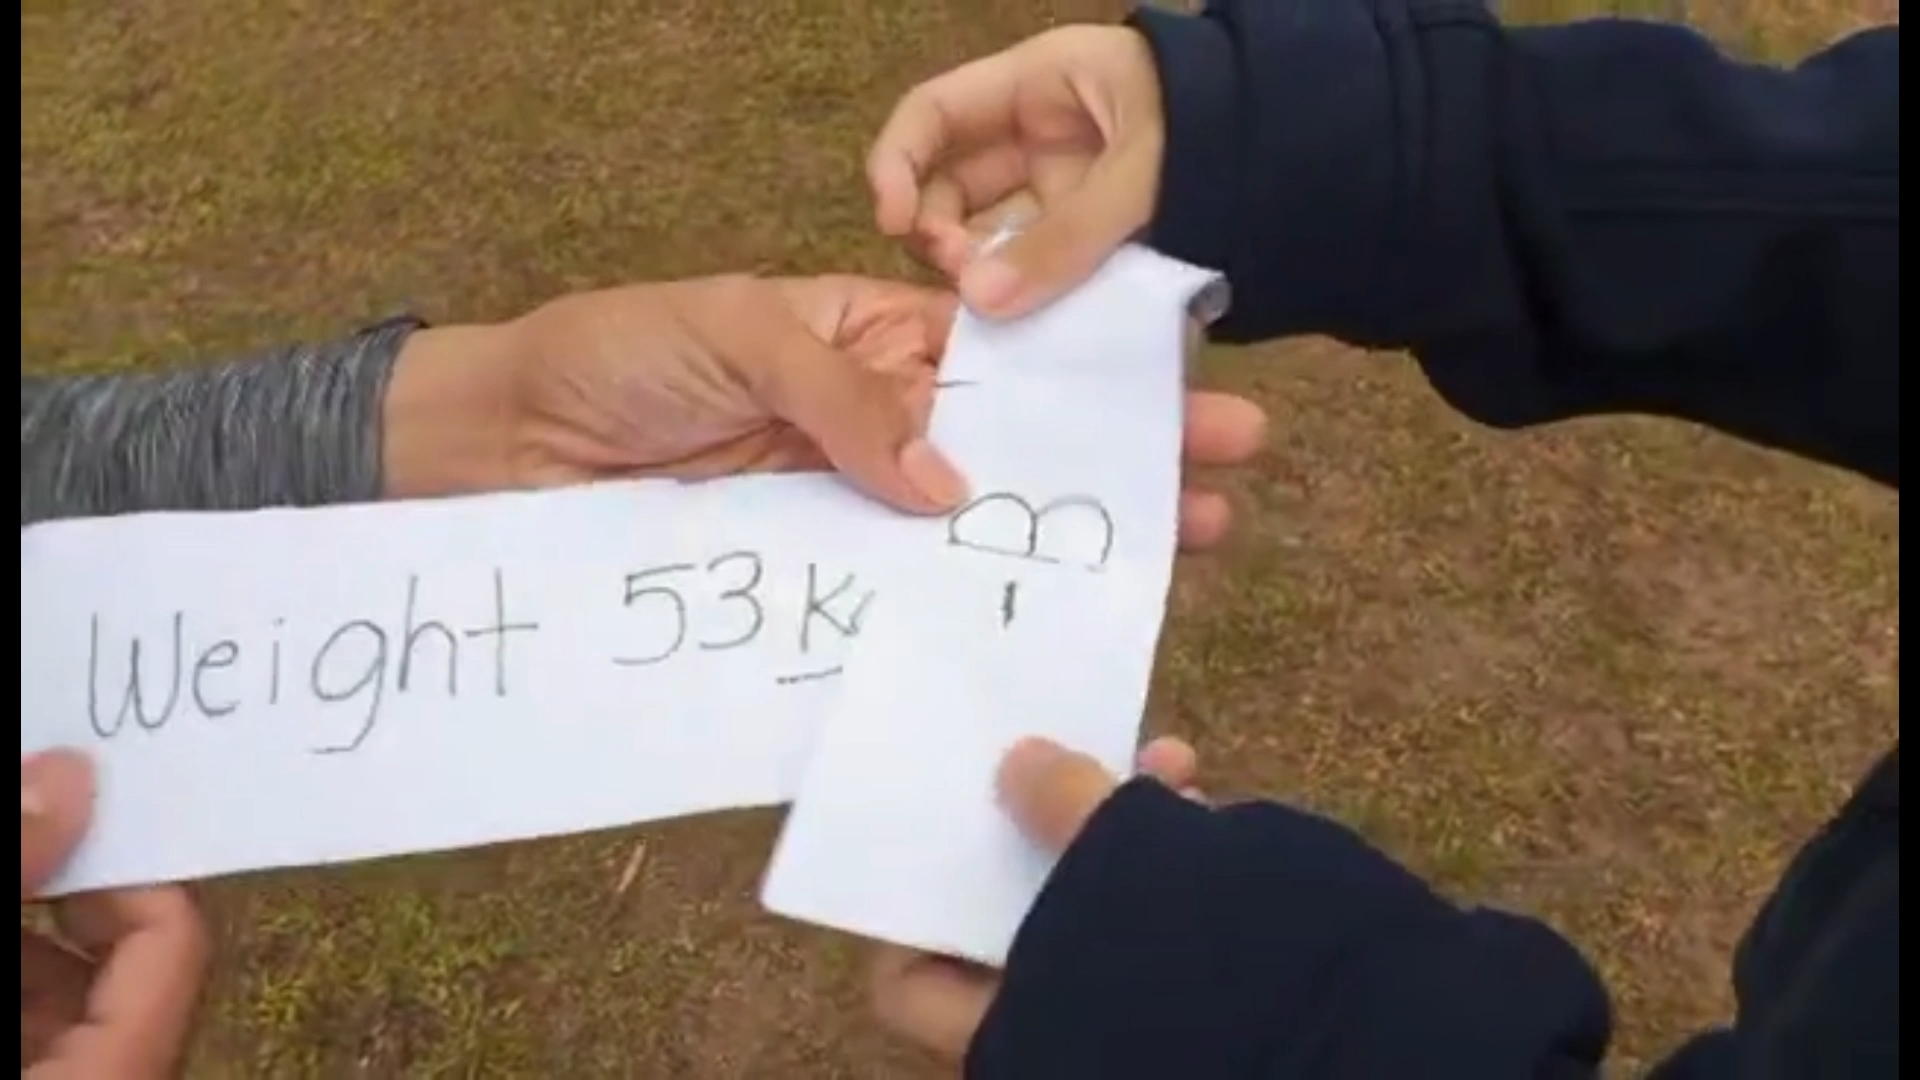 Weight 53 K
B